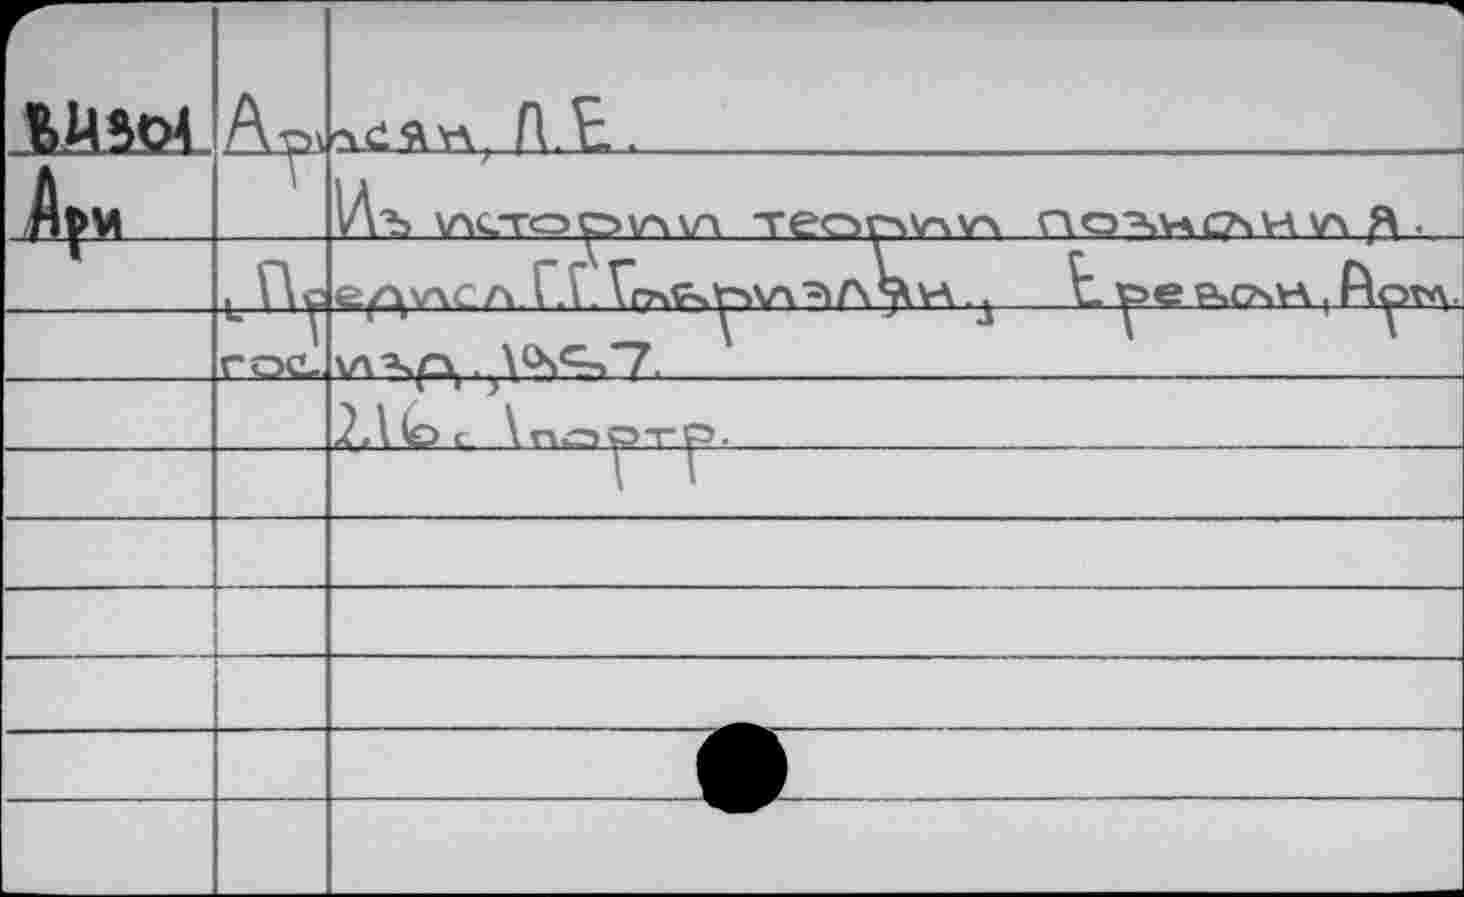 Арисян, Л.Е.
Ари
Из истории теории познания.
[Предисл. Г.Г. Габриэлян.] Ереван, Арм.
гос. изд., 1957.
216 с. 1 портр.